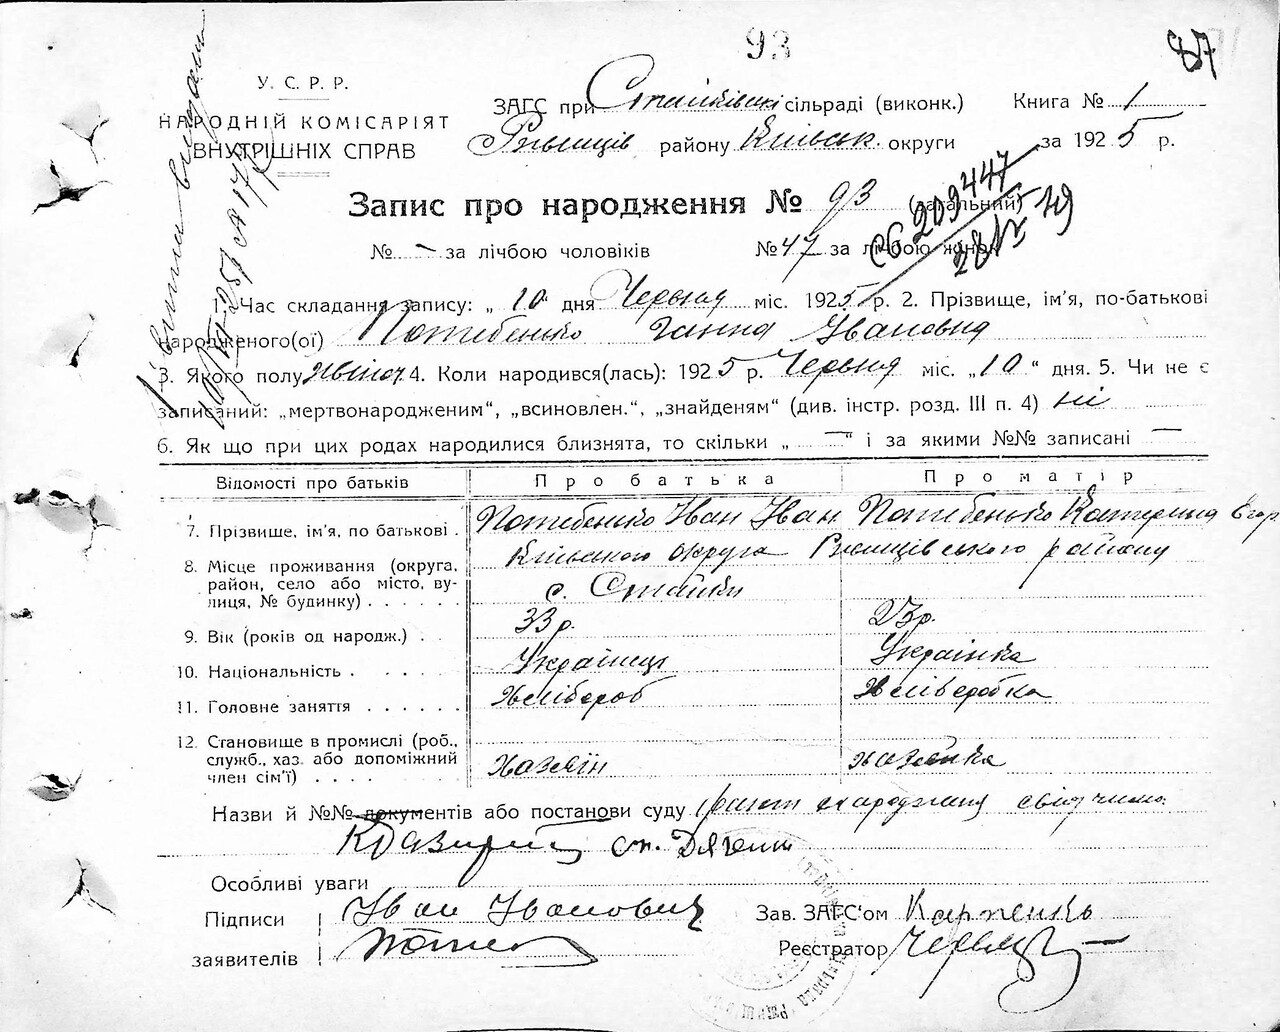 93
87
У. С. Р. Р.
НАРОДНІЙ КОМІСАРІЯТ
ВНУТРІШНІХ СПРАВ
ЗАГС при Стайківські сільраді (виконк.) Книга № 1
Ржищів району Київськ. округи за 1925 р.
Запис про народження № 93 (загальний)
№ – за лічбою чоловіків № 47 за лічбою жінок
СБ 209447
1. Час складання запису: „ 10 " дня Червня міс. 1925 р. 2. Прізвище, ім'я, по-батькові
народженого(ої) Потебенько Ганна Івановна
3. Якого полу жіноч 4. Коли народився(лась): 1925 р. Червня міс. „ 10 " дня. 5. Чи не є
записаний: „мертвонародженим", „всиновлен.", „знайденям" (див. інстр. розд. III п. 4) ні
6. Як що при цих родах народилися близнята, то скільки „ — " і за якими №№ записані —
Відомості про батьків Про батька Про матір
7. Прізвище, ім'я, по батькові . Потебенько Іван Іван Потебенько Катерина Єгор
8. Місце проживання (округа, район, село або місто, вулиця, № будинку) . . . . . . Київского округа Ржищівського району
с. Стайки
9. Вік (років од народж.) . . 33 р. 23 р.
10. Національність . . . . . Українець Українка
11. Головне заняття . . . . . . Хлібороб Хліборобка
12. Становище в промислі (роб., служб., хаз. або допоміжний член сім'ї) . . . . Хазяїн хазяйка
Назви й №№ документів або постанови суду
Особливі уваги
Підписи Іван Іванович Зав. ЗАГС'ом Карпенко
заявителів Реєстратор